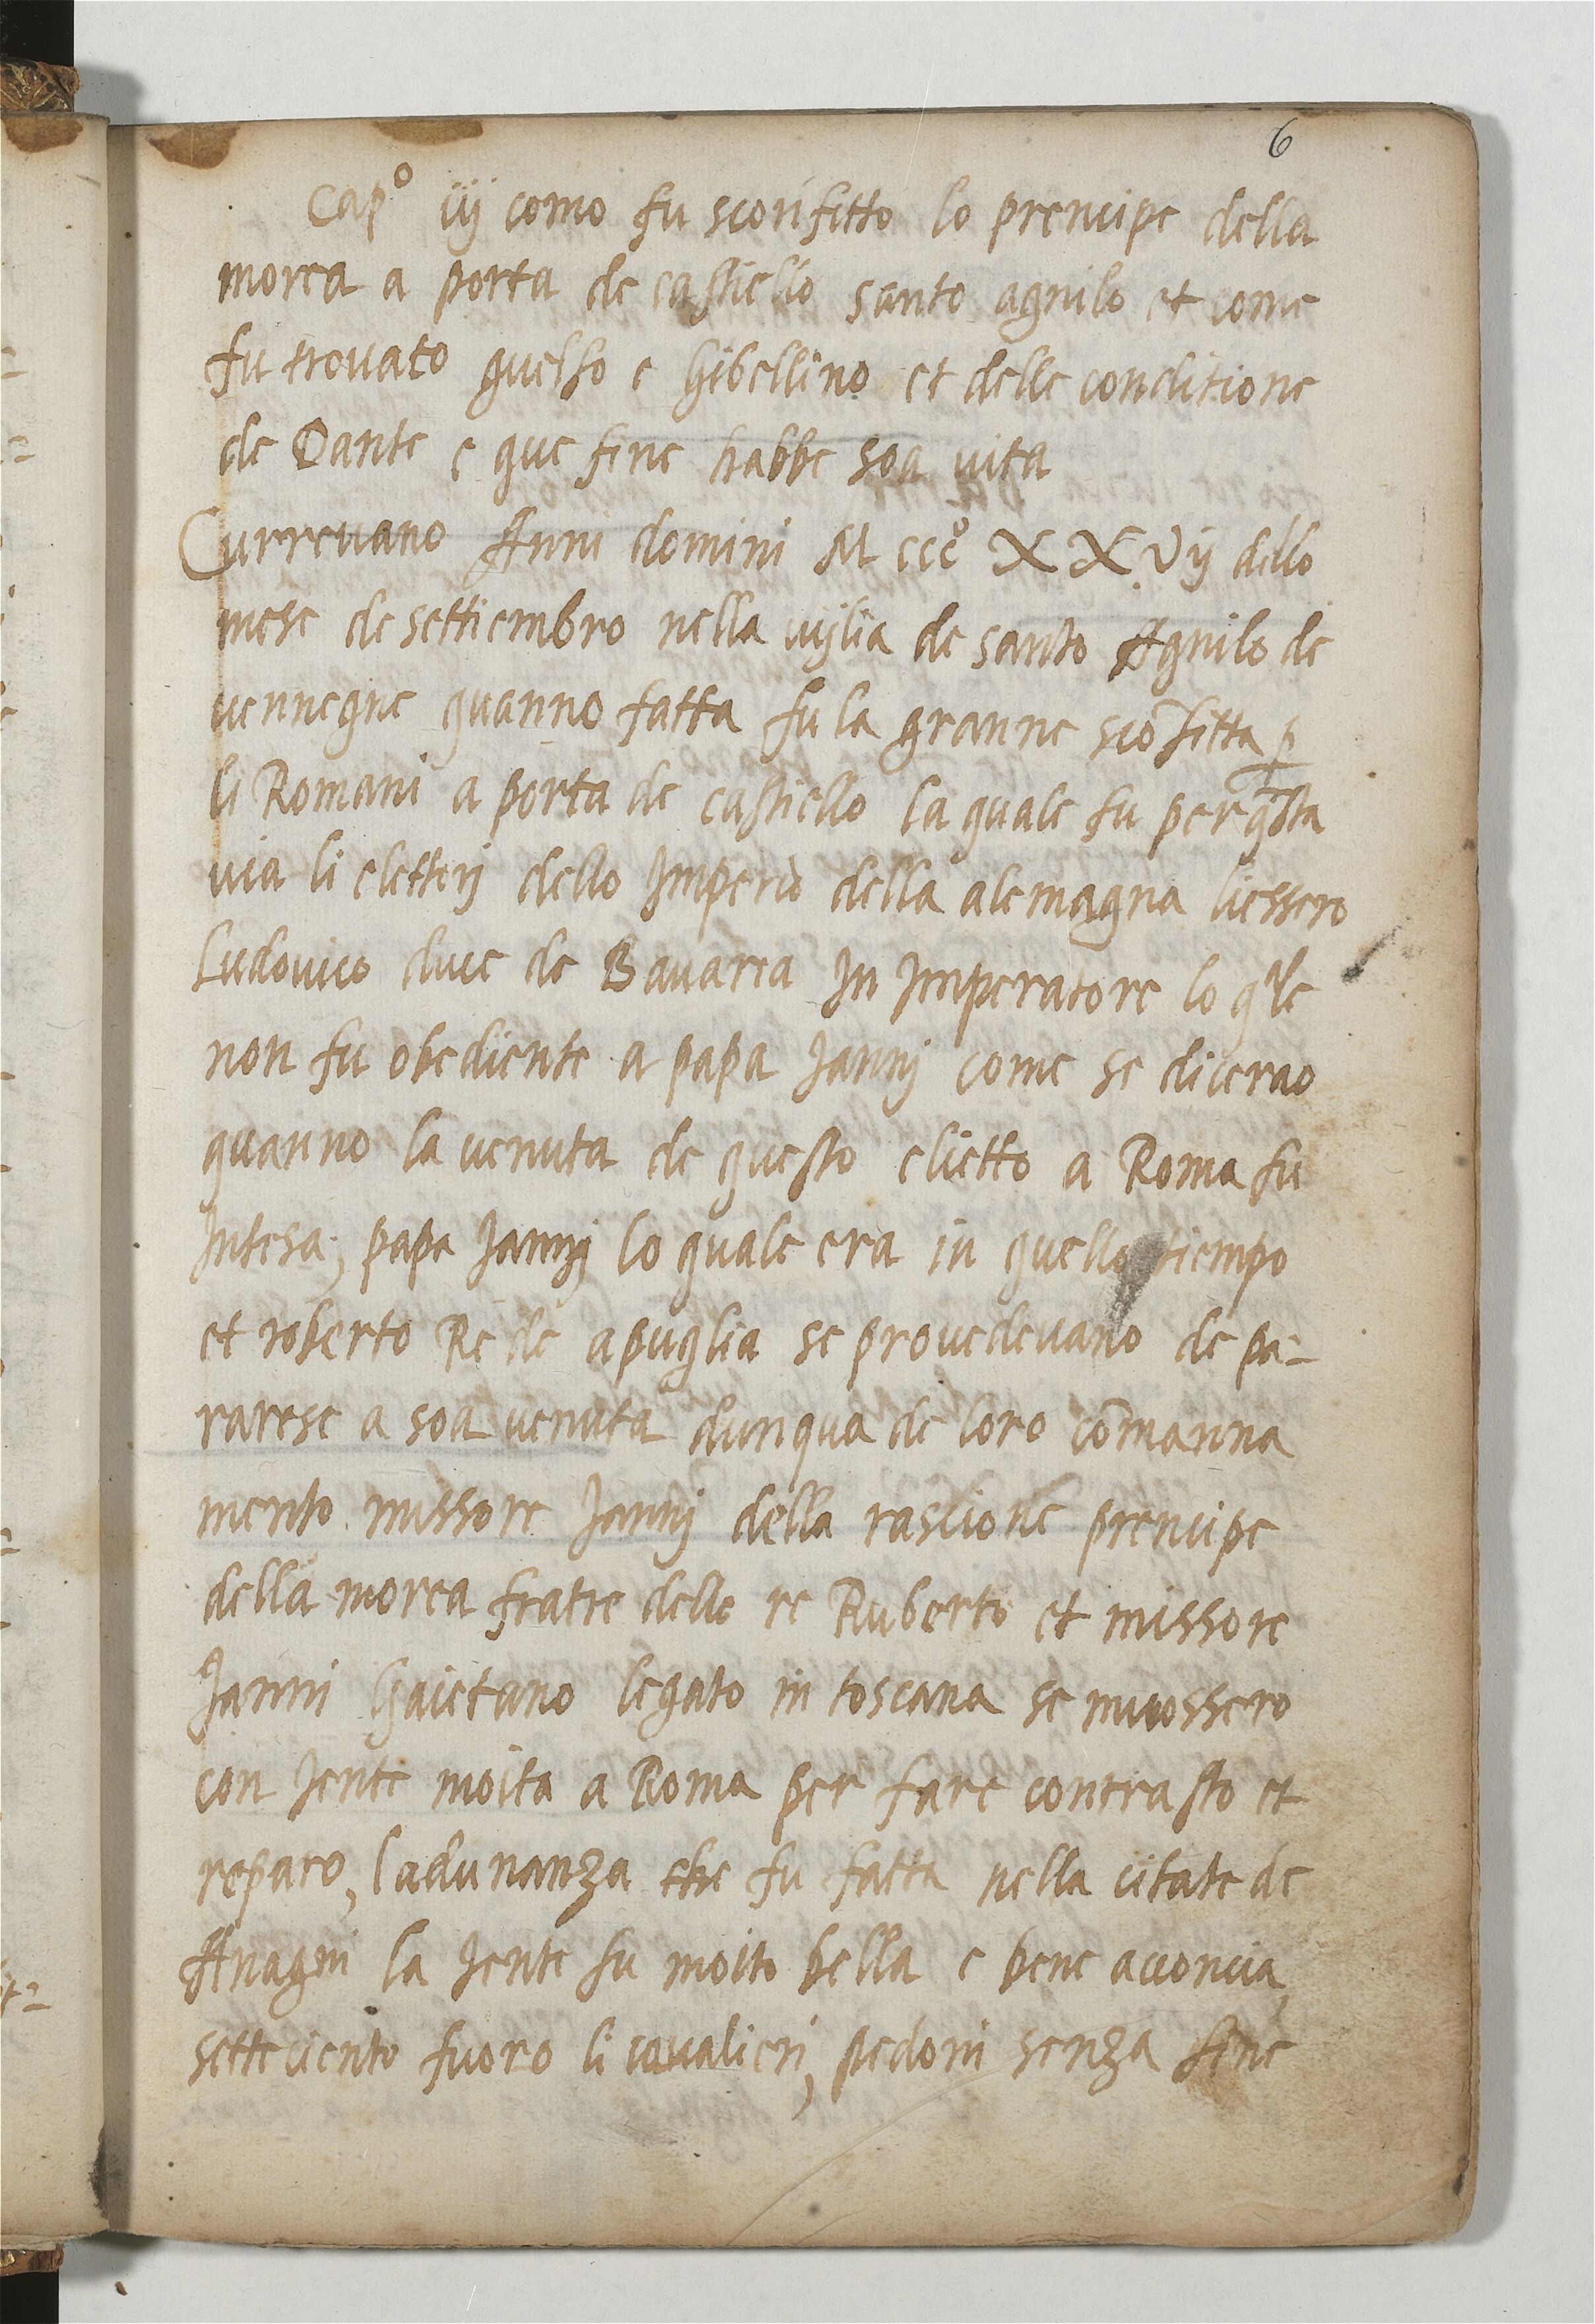 6
Cap° iij como fu sconfitto lo prencipe della
morea a porta de castiello santo agnilo et come
fu trouato guelfo e ghibellino et delle conditione
de Dante e que fine habbe soa uita
Curreuano Anni domini M ccc° XXVij dello
mese de settiembro nella uijlia de santo Agnilo de
uennegne quanno fatta fu la granne scōfitta p
li Romani a porta de castiello la quale fu per q̄sta
uia li elettorj dello Imperio della alemagna liessero
Ludouico duce de Bauarea In Imperatore lo qle
non fu obediente a papa Iannj come se dicerao
quanno la uenuta de questo elietto a Roma fu
Intesa, papa Iannj lo quale era in quello tiempo
et roberto Re de apuglia se prouedeuano de pa-
rarese a soa uenuta dunqua de loro cōmanna
mento missore Iannj della rascione prencipe
della morea fratre dello re Ruberto et missore
Ianni Gaietano legato in toscana se muossero
con Iente moita a Roma per fare contrasto et
reparo, ladunanza che fu fatta nella citate de
Anagni la Iente fu moito bella e bene acconcia,
setteciento fuoro li caualieri, pedoni senza fine